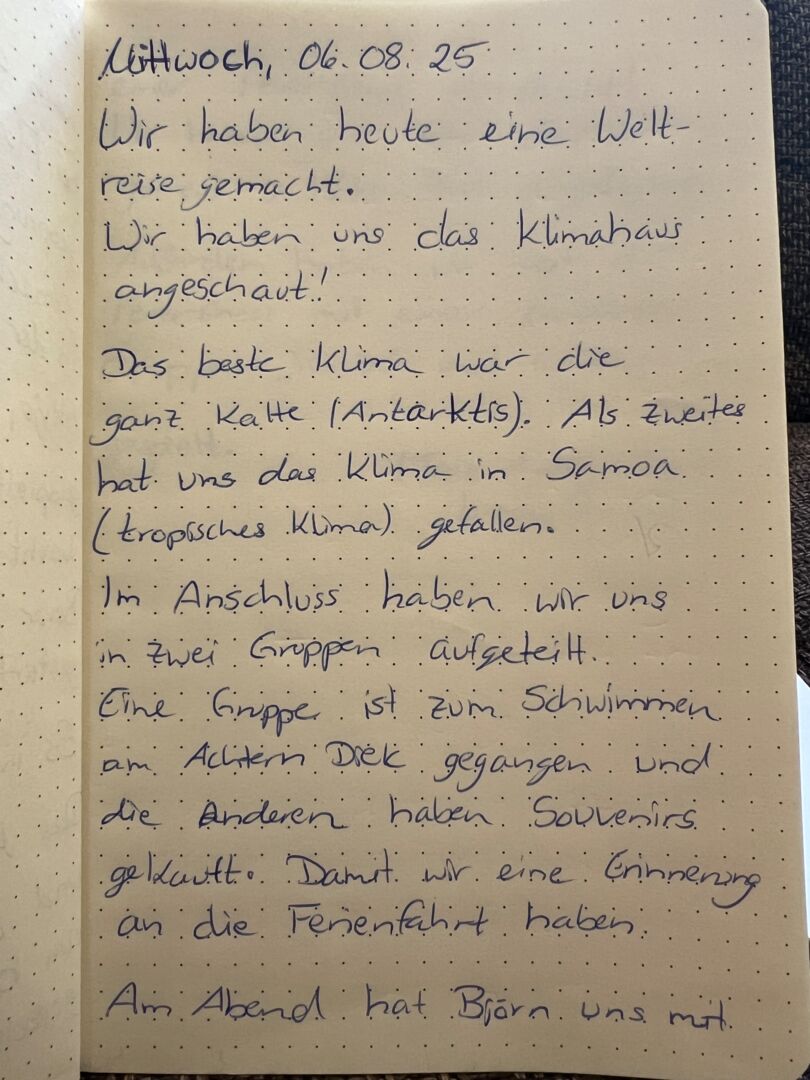 Mittwoch, 06.08.25
Wir haben heute eine Welt-
reise gemacht.
Wir haben uns das Klimahaus
angeschaut!
Das beste Klima war die
ganz Kalte (Antarktis). Als zweites
hat uns das Klima in Samoa
(tropisches Klima) gefallen.
Im Anschluss haben wir uns
in zwei Gruppen aufgeteilt.
Eine Gruppe ist zum Schwimmen
am Achtern Diek gegangen und
die Anderen haben Souvenirs
gekauft. Damit wir eine Erinnerung
an die Ferienfahrt haben.
Am Abend hat Björn uns mit